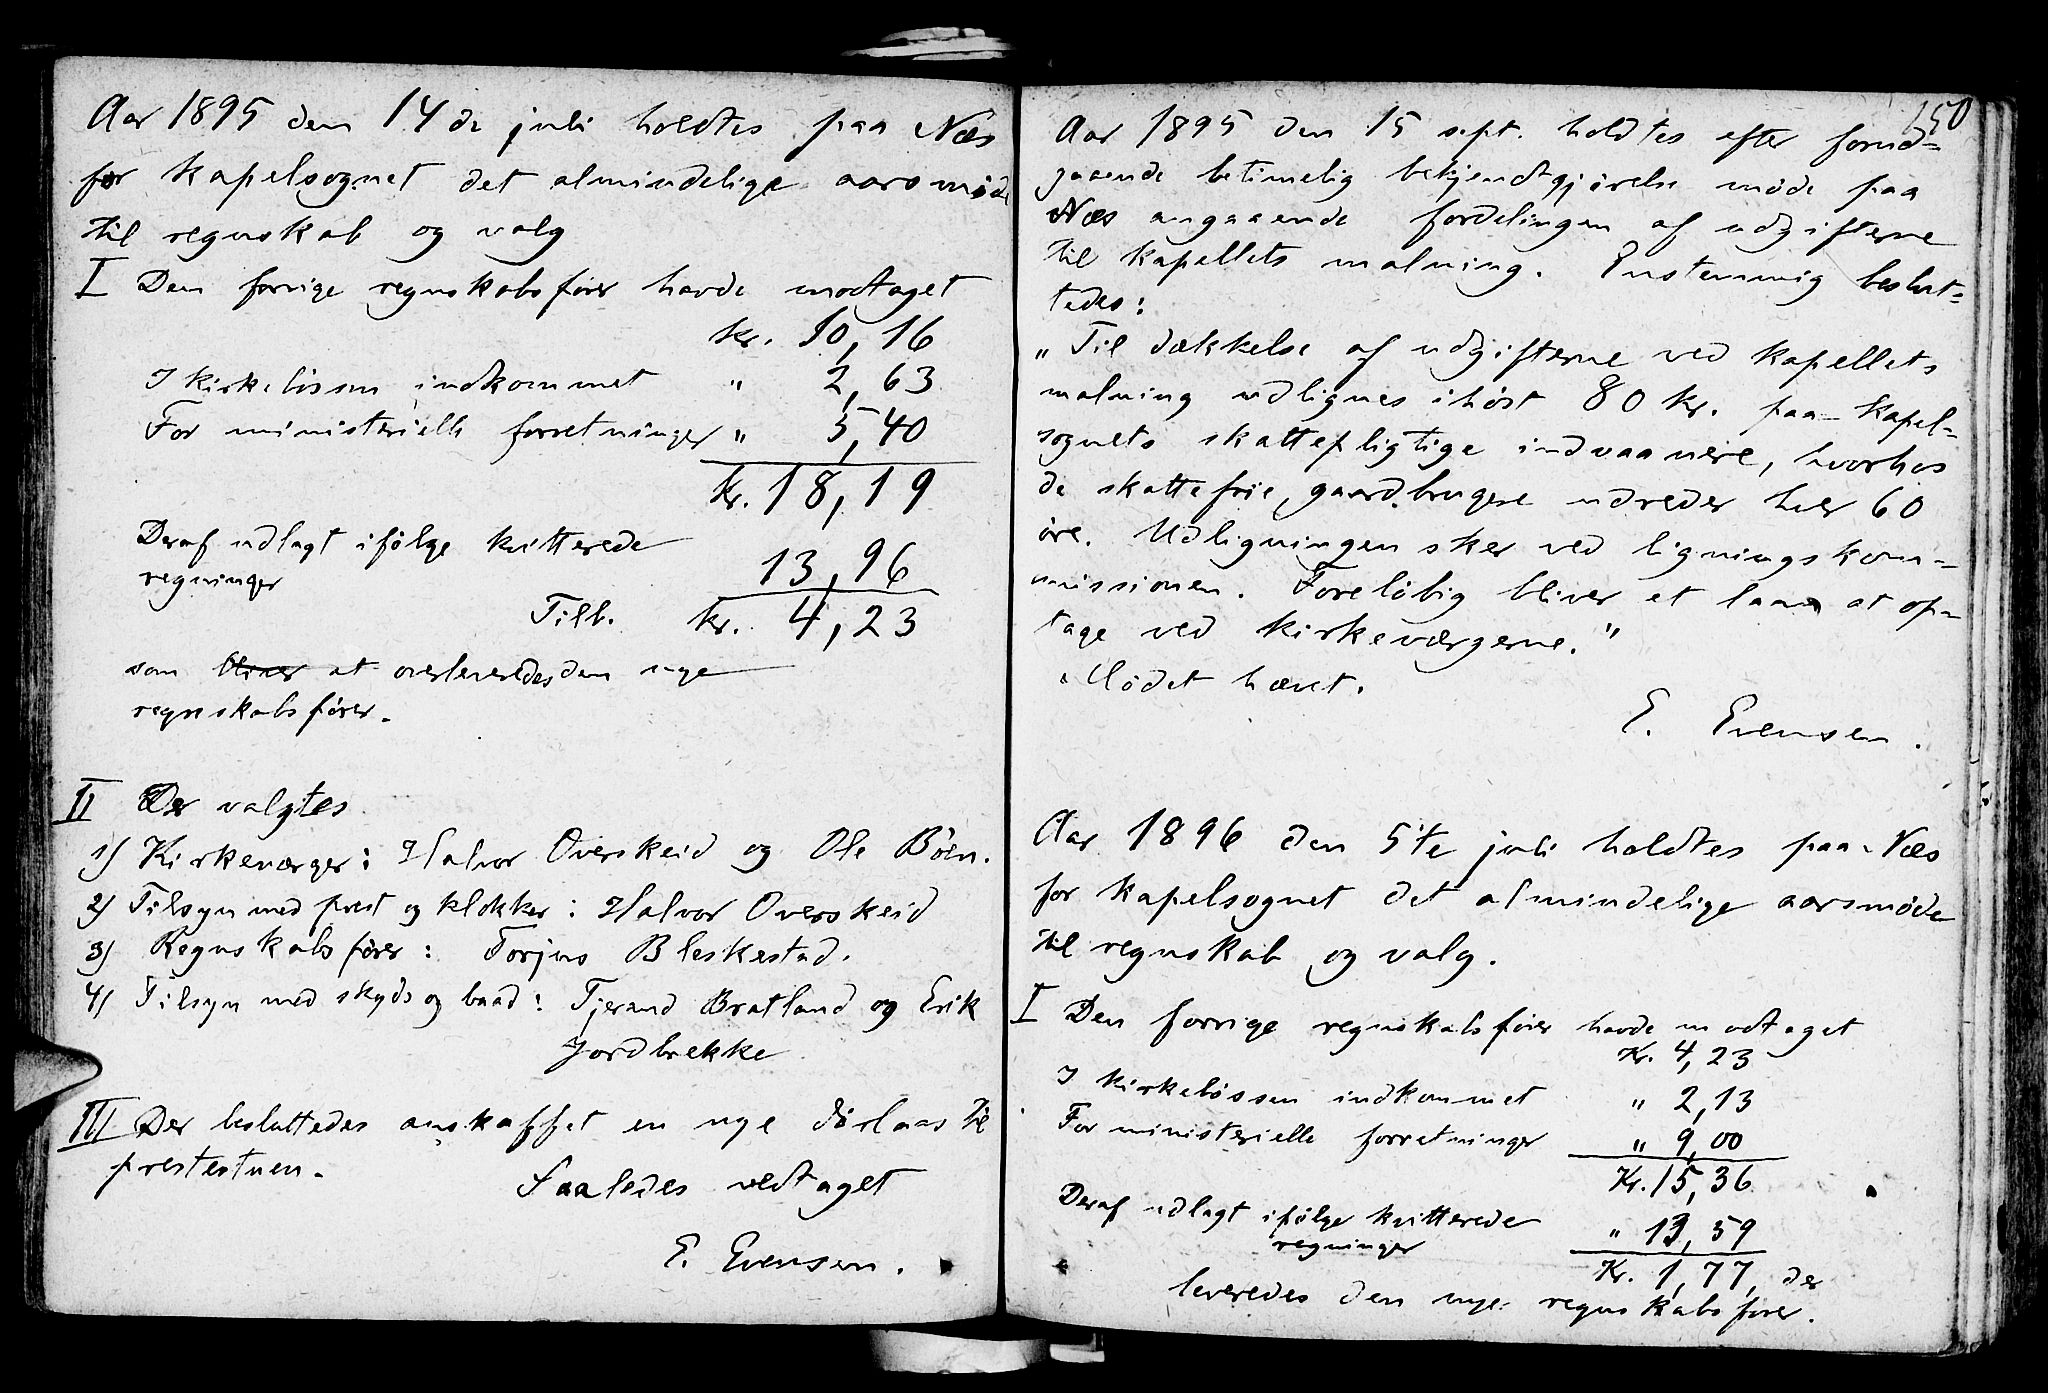 Aar 1895 den 14de juli holdtes paa Næs
for kapelsognet det almindelige aarsmøde
til regnskab og valg
I Den forrige regnskabsfører havde modtaget
kr. 10,16
I kirkebøssen indkommet " 2,63
For ministerielle forretninger " 5,40
Kr. 18,19
Deraf udlagt ifølge kvitterede
regninger 13,96
Tilb. kr. 4,23
som bliver at overleveredes den nye
regnskabsfører.
II Der valgtes
1) Kirkeværger: Halvor Overskeid og Ole Bøen.
2) Tilsyn med prest og klokker: Halvor Overskeid
3) Regnskabsfører: Torjus Bleskestad.
4) Tilsyn med skyds og baad: Tjerand Bratland og Erik
Jordbrekke
III Der besluttedes anskaffet en nye dørlaas til
prestestuen.
Saaledes vedtaget
E. Evensen.
150
Aar 1895 den 15 sept. holdtes efter forud-
gaaende betimelig bekjendtgjørelse møde paa
Næs angaaende fordelingen af udgifterne
til kapellets malning. Enstemmig beslut-
tedes:
"Til dækkelse af udgifterne ved kapellets
malning udlignes i høst 80 kr. paa kapel-
sognets skattepligtige indvaanere, hvorhos
de skattefrie gaardbrugere udreder hver 60
øre. Udligningen sker ved ligningskom-
missionen. Foreløbig bliver et laan at op-
tage ved kirkeværgerne."
Mødet hævet.
E. Evensen.
Aar 1896 den 5te juli holdtes paa Næs
for kapelsognet det almindelige aarsmøde
til regnskab og valg.
I Den forrige regnskabsfører havde modtaget
Kr. 4,23
I kirkebøssen indkommet " 2,13
For ministerielle forretninger " 9,00
Kr. 15,36
Deraf udlagt ifølge kvitterede " 13,59
regninger
Kr. 1,77, der
leveredes den nye regnskabsfører.